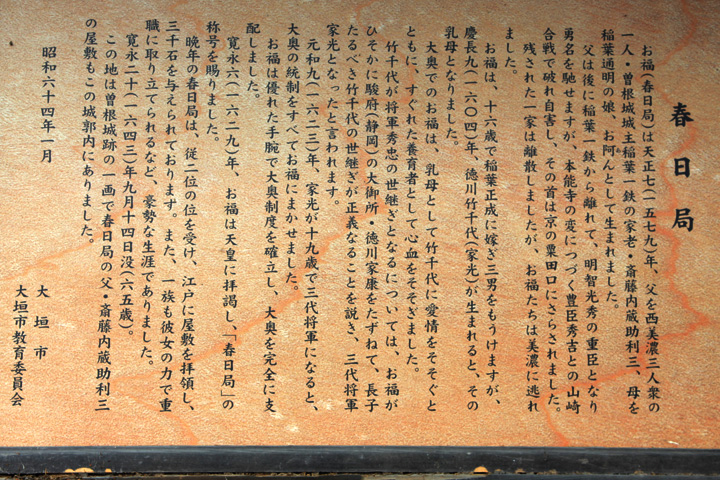 春日局
お福(春日局)は天正七(一五七九)年、父を西美濃三人衆の
一人・曽根城城主稲葉一鉄の家老・斎藤内蔵助利三、母を
稲葉通明の娘、お阿んとして生まれました。
父は後に稲葉一鉄から離れて、明智光秀の重臣となり
勇名を馳せますが、本能寺の変につづく豊臣秀吉との山崎
合戦で破れ自害し、その首は京の粟田口にさらされました。
残された一家は離散しましたが、お福たちは美濃に逃れ
ました。
お福は、十六歳で稲葉正成に嫁ぎ三男をもうけますが、
慶長九(一六〇四)年、徳川竹千代(家光)が生まれると、その
乳母となりました。
大奥でのお福は、乳母として竹千代に愛情をそそぐと
ともに、すぐれた養育者として心血をそそぎました。
竹千代が将軍秀忠の世継ぎとなるについては、お福が
ひそかに駿府(静岡)の大御所・徳川家康をたずねて、長子
たるべき竹千代の世継ぎが正義なることを説き、三代将軍
家光となったと言われます。
元和九(一六二三)年、家光が十九歳で三代将軍になると、
大奥の統制をすべてお福にまかせました。
お福は優れた手腕で大奥制度を確立し、大奥を完全に支
配しました。
寛永六(一六二九)年、お福は天皇に拝謁し、「春日局」の
称号を賜りました。
晩年の春日局は、従二位の位を受け、江戸に屋敷を拝領し、
三千石を与えられております。また、一族も彼女の力で重
職に取り立てられるなど、豪勢な生涯でありました。
寛永二十(一六四三)年九月十四日没(六五歳)。
この地は曽根城跡の一画で春日局の父・斎藤内蔵助利三
の屋敷もこの城郭内にありました。
昭和六十四年一月
大垣市
大垣市教育委員会